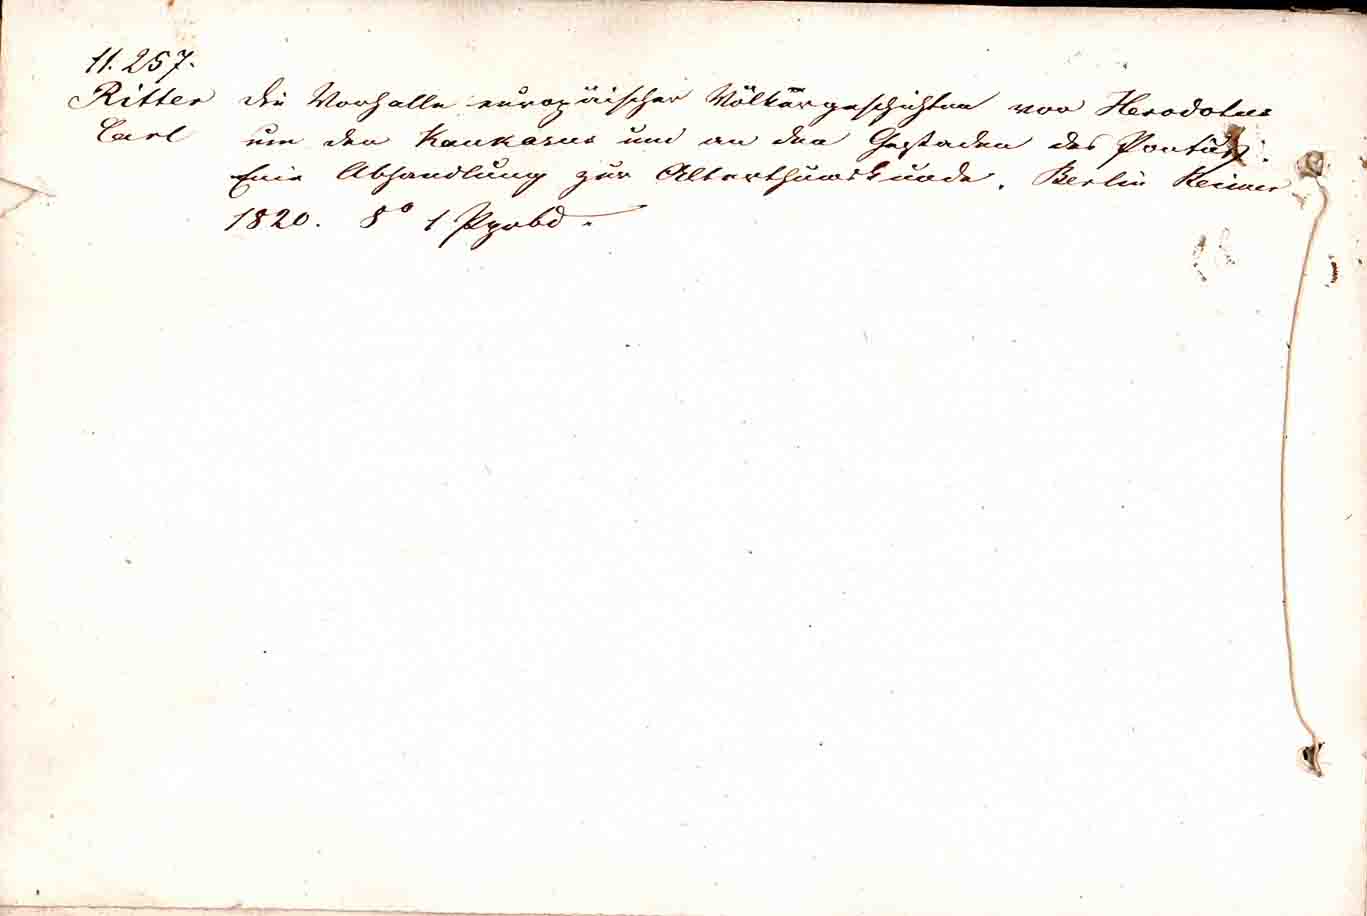 11.257.
Ritter die Vorhalle europäischer Völkergeschichten vor Herodotus
Carl um den Kaukasus und an den Gestaden des Pontus.
Eine Abhandlung zur Alterthumskunde. Berlin Reimer
1820. 8° 1 Ppbd.